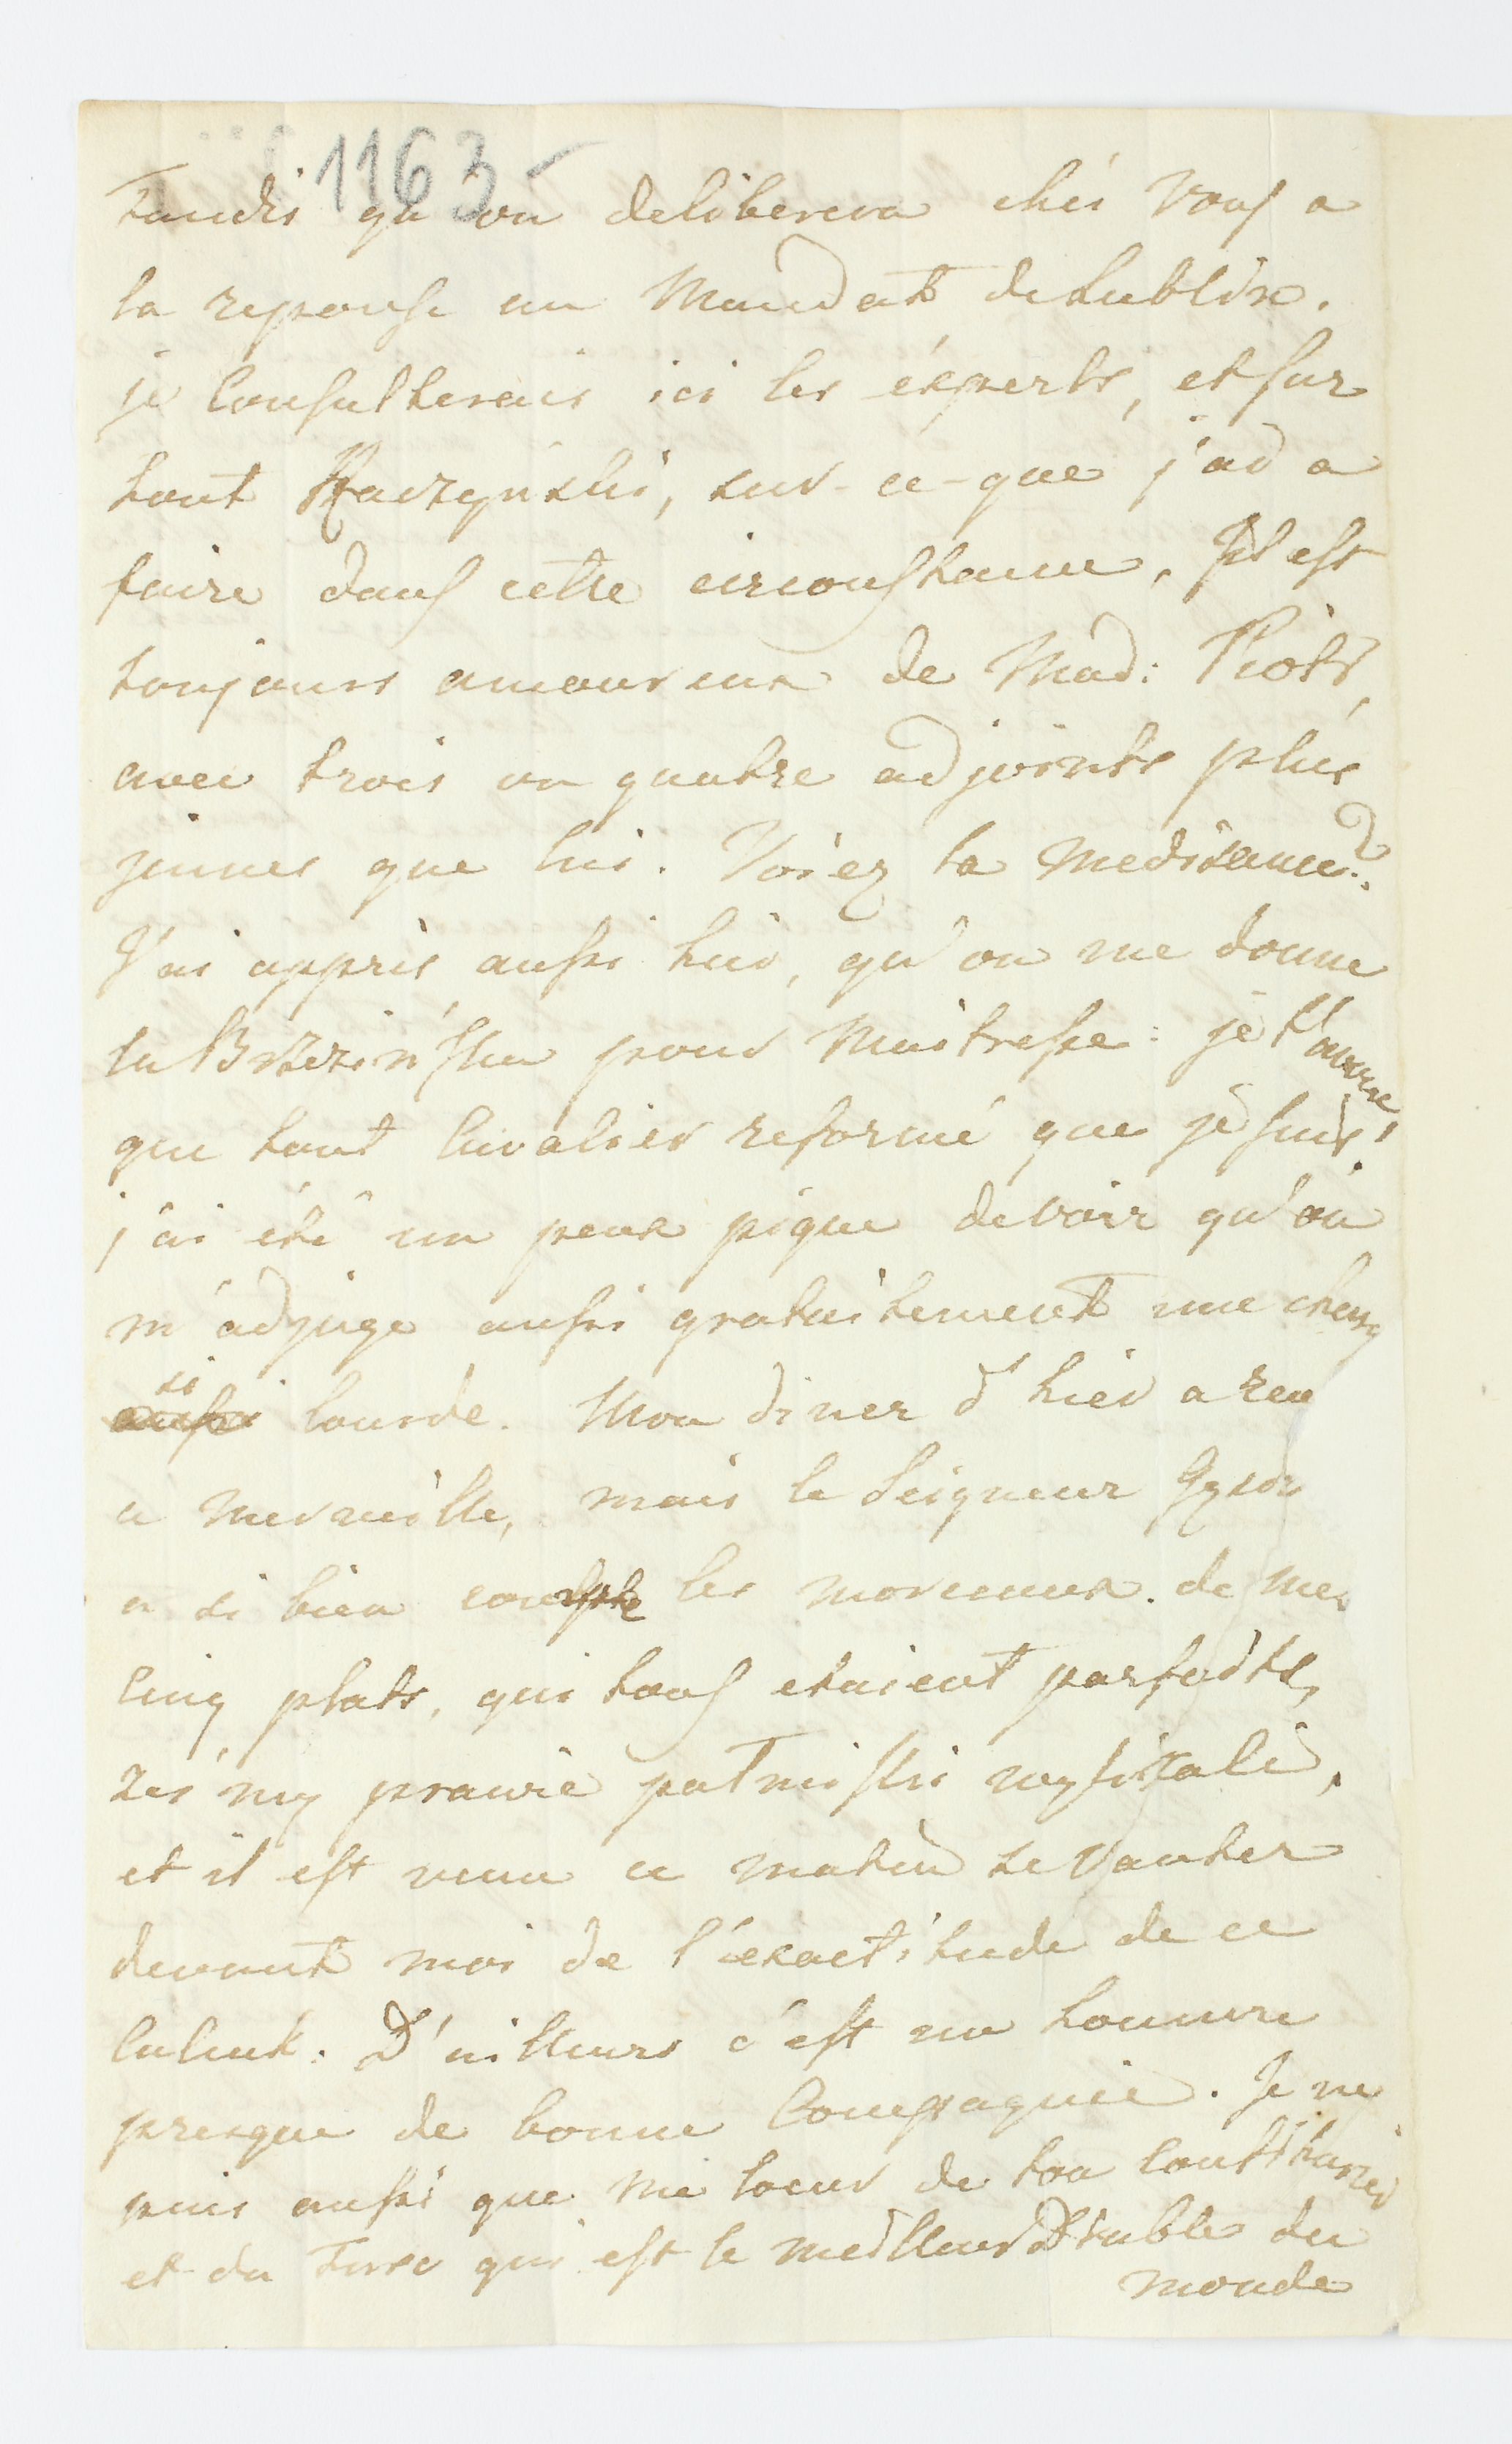 1163
Tandis qu'on deliberera chés Vous a
la reponse au Mandat de Lublin.
je Consulterais ici les éxperts, et sur
tout Raczyński, sur-ce-que j'ai a
faire dans cette circonstance. Il est
toujours amoureux de Mad: Piotr,
avec trois ou quatre adjoints plus
jeunes que lui. Voiez la medisance.
J'ai appris aussi hier, qu'on me donne
la Brzezińska pour Maitresse: je t'avoue
que tout Cavalier reformé que je suis,
j'ai été un peux pique de voir qu'on
m'adjuge aussi gratuitement une charg
aussi si lourde. Mon diner d'hier a reu
a merveille, mais le Seigneur
a si bien compte les morceaux de mes
Cinq plats, qui tous etaient parfaits,
ześmy prawie połmiski wylizali,
et il est venu ce matin se vanter
devant moi de l'éxactitude de ce
Calcul. D'ailleurs c'est un homme
presque de bonne Compagnie. Je ne
puis aussi que me louer de ton
et du Turc qui est le meilleur Diable du
monde